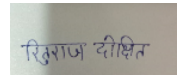 रितुराज दीक्षित